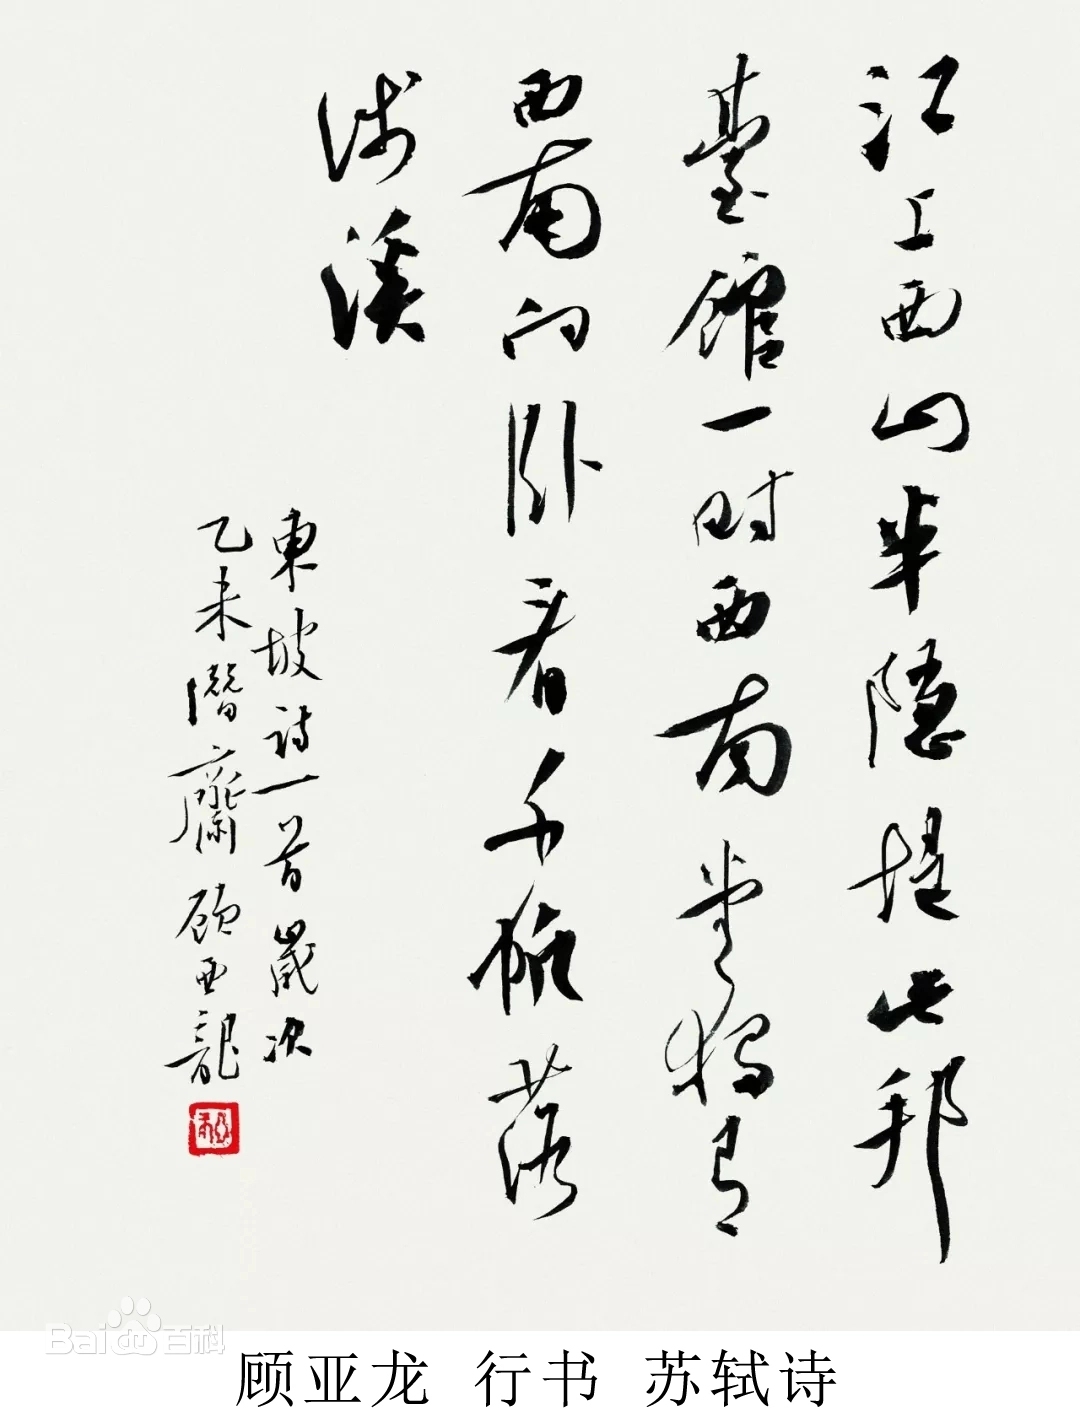 江上西山半隱堤此邦
臺館一時西南堂獨有
西南向卧看千帆落
浅溪
東坡詩一首歲次
乙未潛齋顧亞龍
Bai百科
顾亚龙 行书 苏轼诗